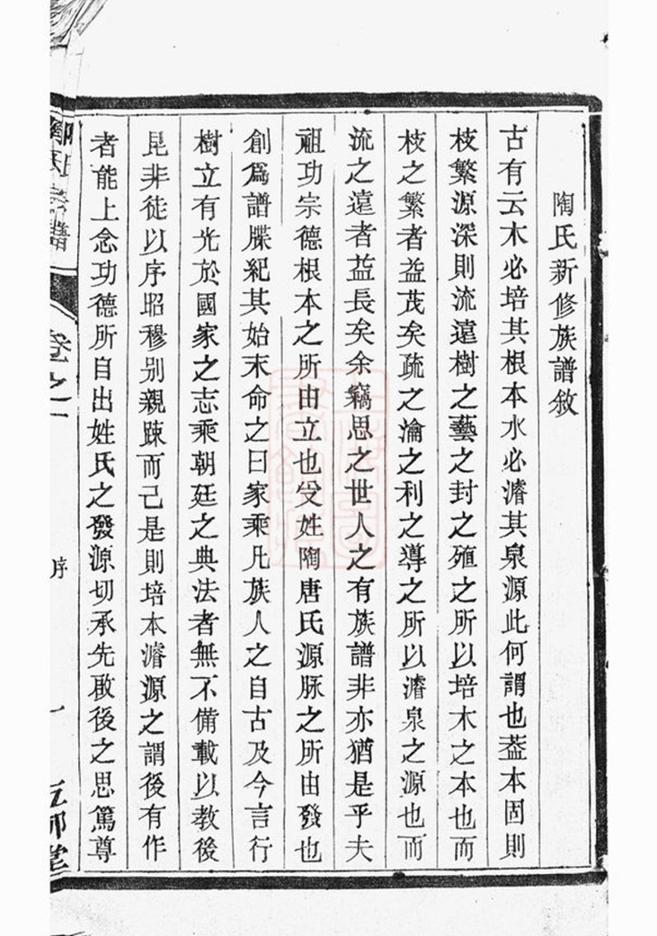 陶氏新修族譜敘
古有云木必培其根本水必濬其泉源此何謂也葢本固則
枝繁源深則流遠樹之藝之封之殖之所以培木之本也而
枝之繁者益茂矣疏之瀹之利之導之所以濬泉之源也而
流之遠者益長矣余竊思之世人之有族譜非亦猶是乎夫
祖功宗德根本之所由立也受姓陶唐氏源脉之所由發也
創爲譜牒紀其始末命之曰家乘凡族人之自古及今言行
樹立有光於國家之志乘朝廷之典法者無不備載以教後
昆非徒以序昭穆别親踈而己是則培本濬源之謂後有作
者能上念功德所自出姓氏之發源切承先啟後之思篤尊
卷之一
序
一
五柳堂